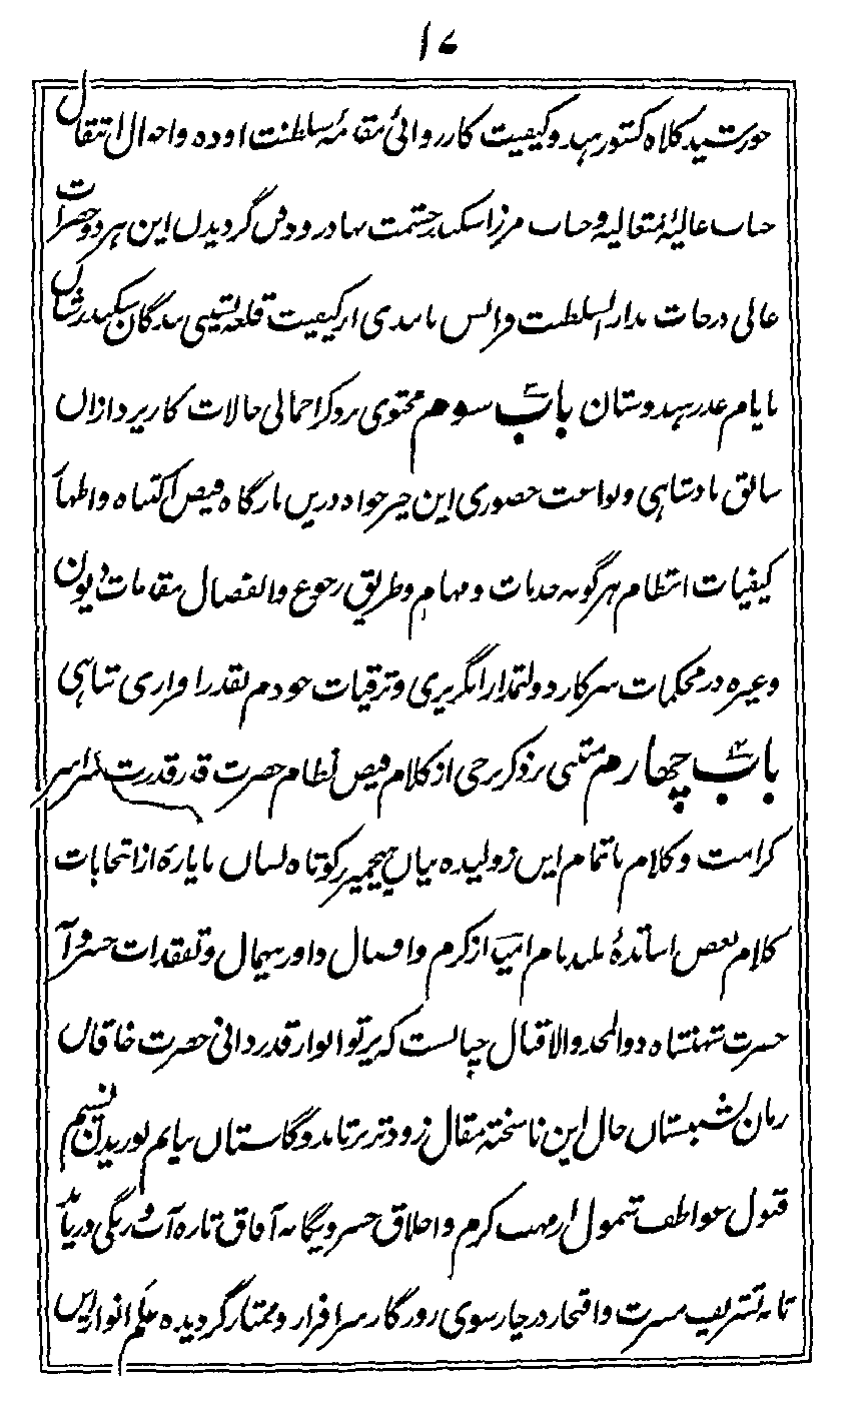 ۱۷
خورشید کلاه کشور هند و کیفیت کارروائی مقدمهٔ سلطنت اوده و احوال انتقال
جناب عالیهٔ متعالیه و جناب مرزا سکندر حشمت بهادر و دفن گردیدن این هر دو حضرات
عالی درجات بدار السلطنت فرانس مابندی از کیفیت قلعه نشینی بندگان سکندر شان
بایام غدر هندوستان باب سوم محتوی بر ذکر اجمالی حالات کارپردازان
سابق بادشاهی و نوبت حضوری این خیرخواه درین بارگاه فیض اکتناه و اظهار
کیفیات انتظام هرگونه خدمات و مهام و طریق رجوع و انفصال مقدمات دیون
وغیره در محکمات سرکار دولتمدار انگریزی و ترقیات خودم بقدر افزای شاهی
باب چهارم مبتنی بر ذکر برخی از کلام فیض نظام حضرت قدر قدرت سراسر
کرامت و کلام ناتمام این ژولیده بیان هیچمیرز کوتاه لسان با پارهٔ از انتخابات
کلام بعض اساتذهٔ بلند نام امید از کرم و افضال داور بیهمال و تفقدات خسروآ
حضرت شهنشاه ذوالمجد والاقبال چنانست که پرتو انوار قدردانی حضرت خاقان
زمان بشبستان حال این ناسخته مقال زودتر برتابد و گلستان بیانم بوزیدن نسیم
قبول عواطف شمول از مهب کرم و اخلاق خسرو یگانه آفاق تازه آب و رنگی دریابد
تا به تشریف مسرت و افتخار در چارسوی روزگار سرافراز و ممتاز گردیده علم انوار این